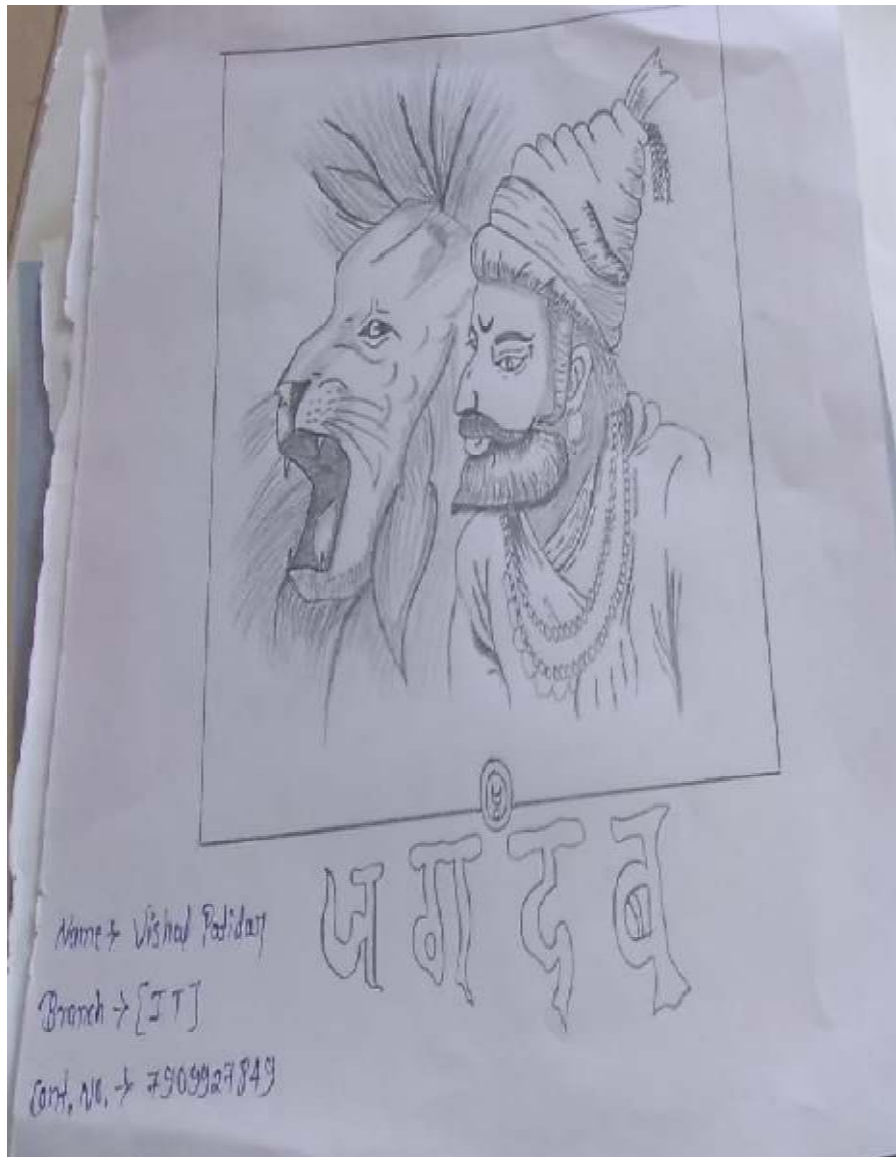 जगदब
Name → Vishal Patidar
Branch → [IT]
Cont. No. → 7909927849